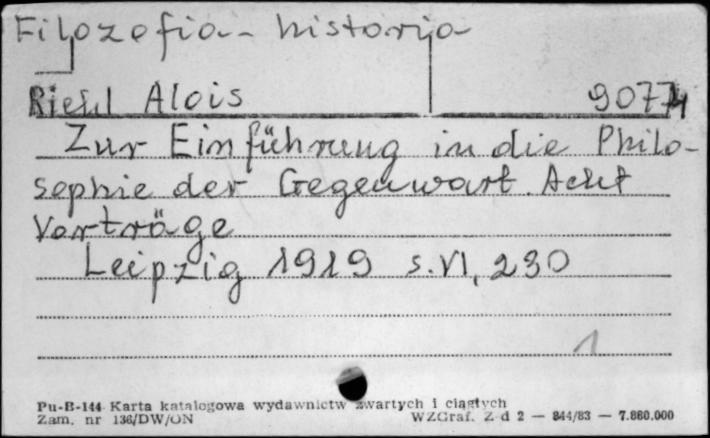 Filozofia - historia
Riehl Alois 90774
Zur Einführung in die Philo-
sophie der Gegenwart. Acht
Vorträge
Leipzig 1919 s. VI, 230
1
Pu-B-144 Karta katalogowa wydawnictw zwartych i ciągłych
Zam. nr 136/DW/ON WZGraf. Z-d 2 — 844/83 — 7.880.000